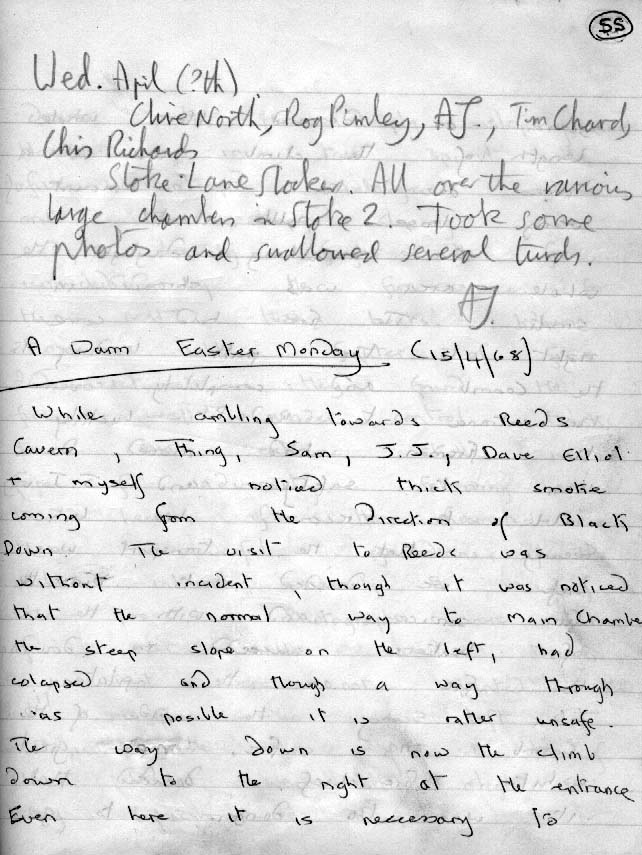 55
Wed. April (?th)
Clive North, Rog Pimley, AJ., Tim Chard,
Chris Richards
Stoke Lane Slocker. All over the various
large chambers in Stoke 2. Took some
photos and swallowed several turds.
AJ.
A Damn Easter Monday (15/4/68)
While ambling towards Reeds
Cavern, Thing, Sam, J.J., Dave Elliot
+ myself noticed thick smoke
coming from the Direction of Black
Down. The visit to Reeds was
without incident, though it was noticed
that the normal way to Main Chambe
the steep slope on the left, had
colapsed and though a way through
was possible it is rather unsafe.
The way down is now the climb
down to the right at the entrance
Even here it is neccessary to